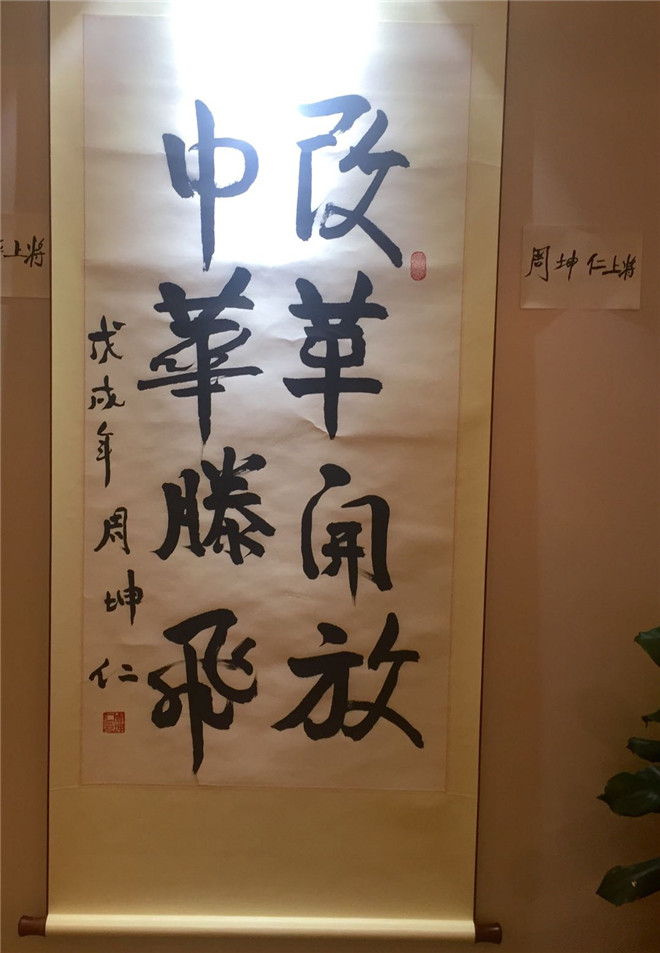 改革開放
中華滕飛
戊戌年 周坤仁
周坤仁上将
上将